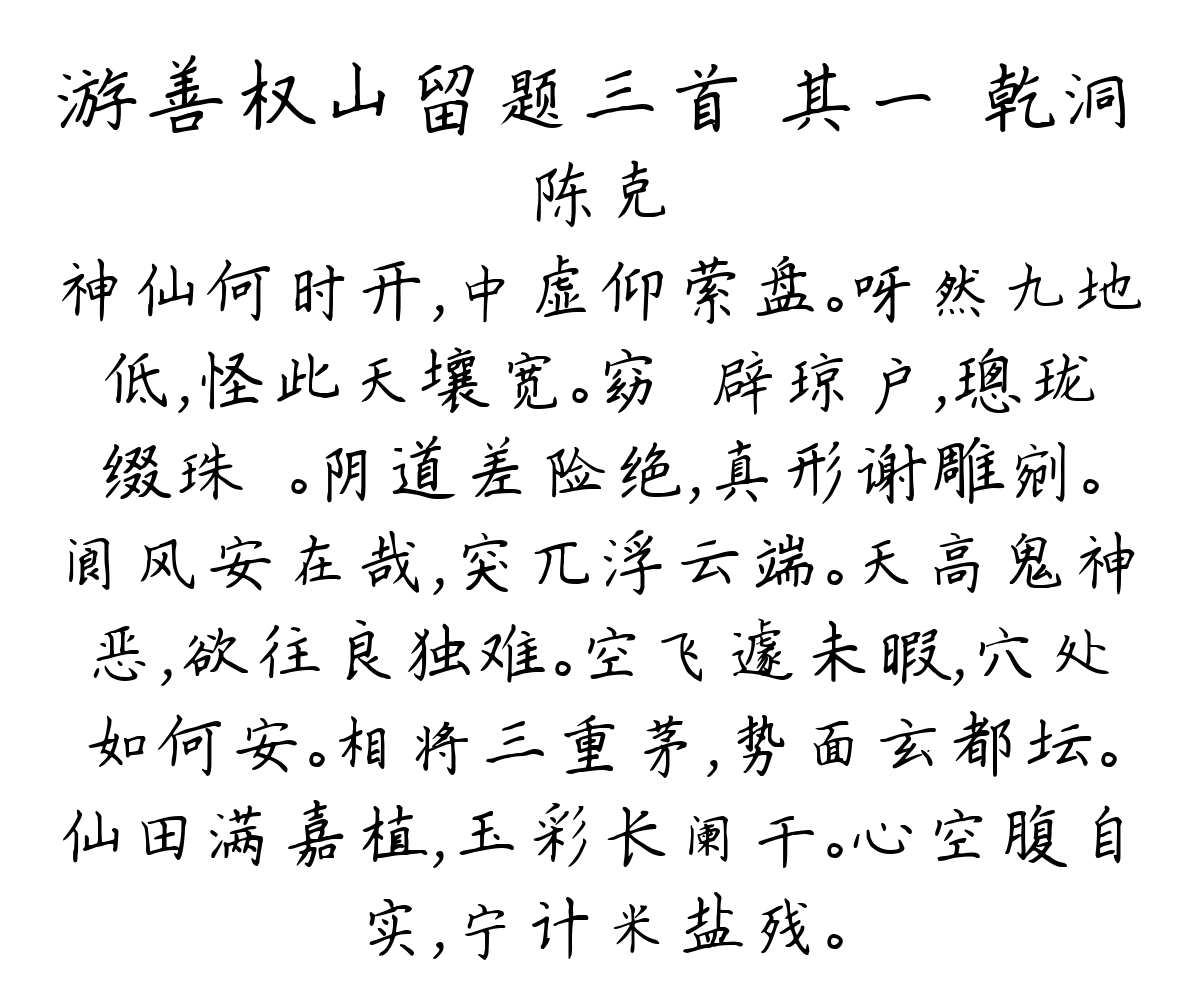 游善权山留题三首 其一 乾洞
陈克
神仙何时开,中虚仰萦盘。呀然九地
低,怪此天壤宽。窈 辟琼户,璁珑
缀珠 。阴道差险绝,真形谢雕剜。
阆风安在哉,突兀浮云端。天高鬼神
恶,欲往良独难。空飞遽未暇,穴处
如何安。相将三重茅,势面玄都坛。
仙田满嘉植,玉彩长阑干。心空腹自
实,宁计米盐残。